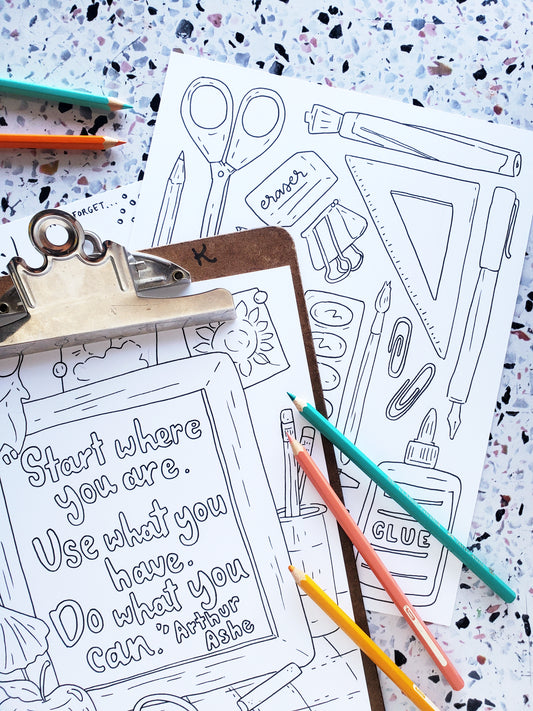 FORGET...
K
eraser
"Start where
you are.
Use what you
have.
Do what you
can." Arthur
Ashe
GLUE